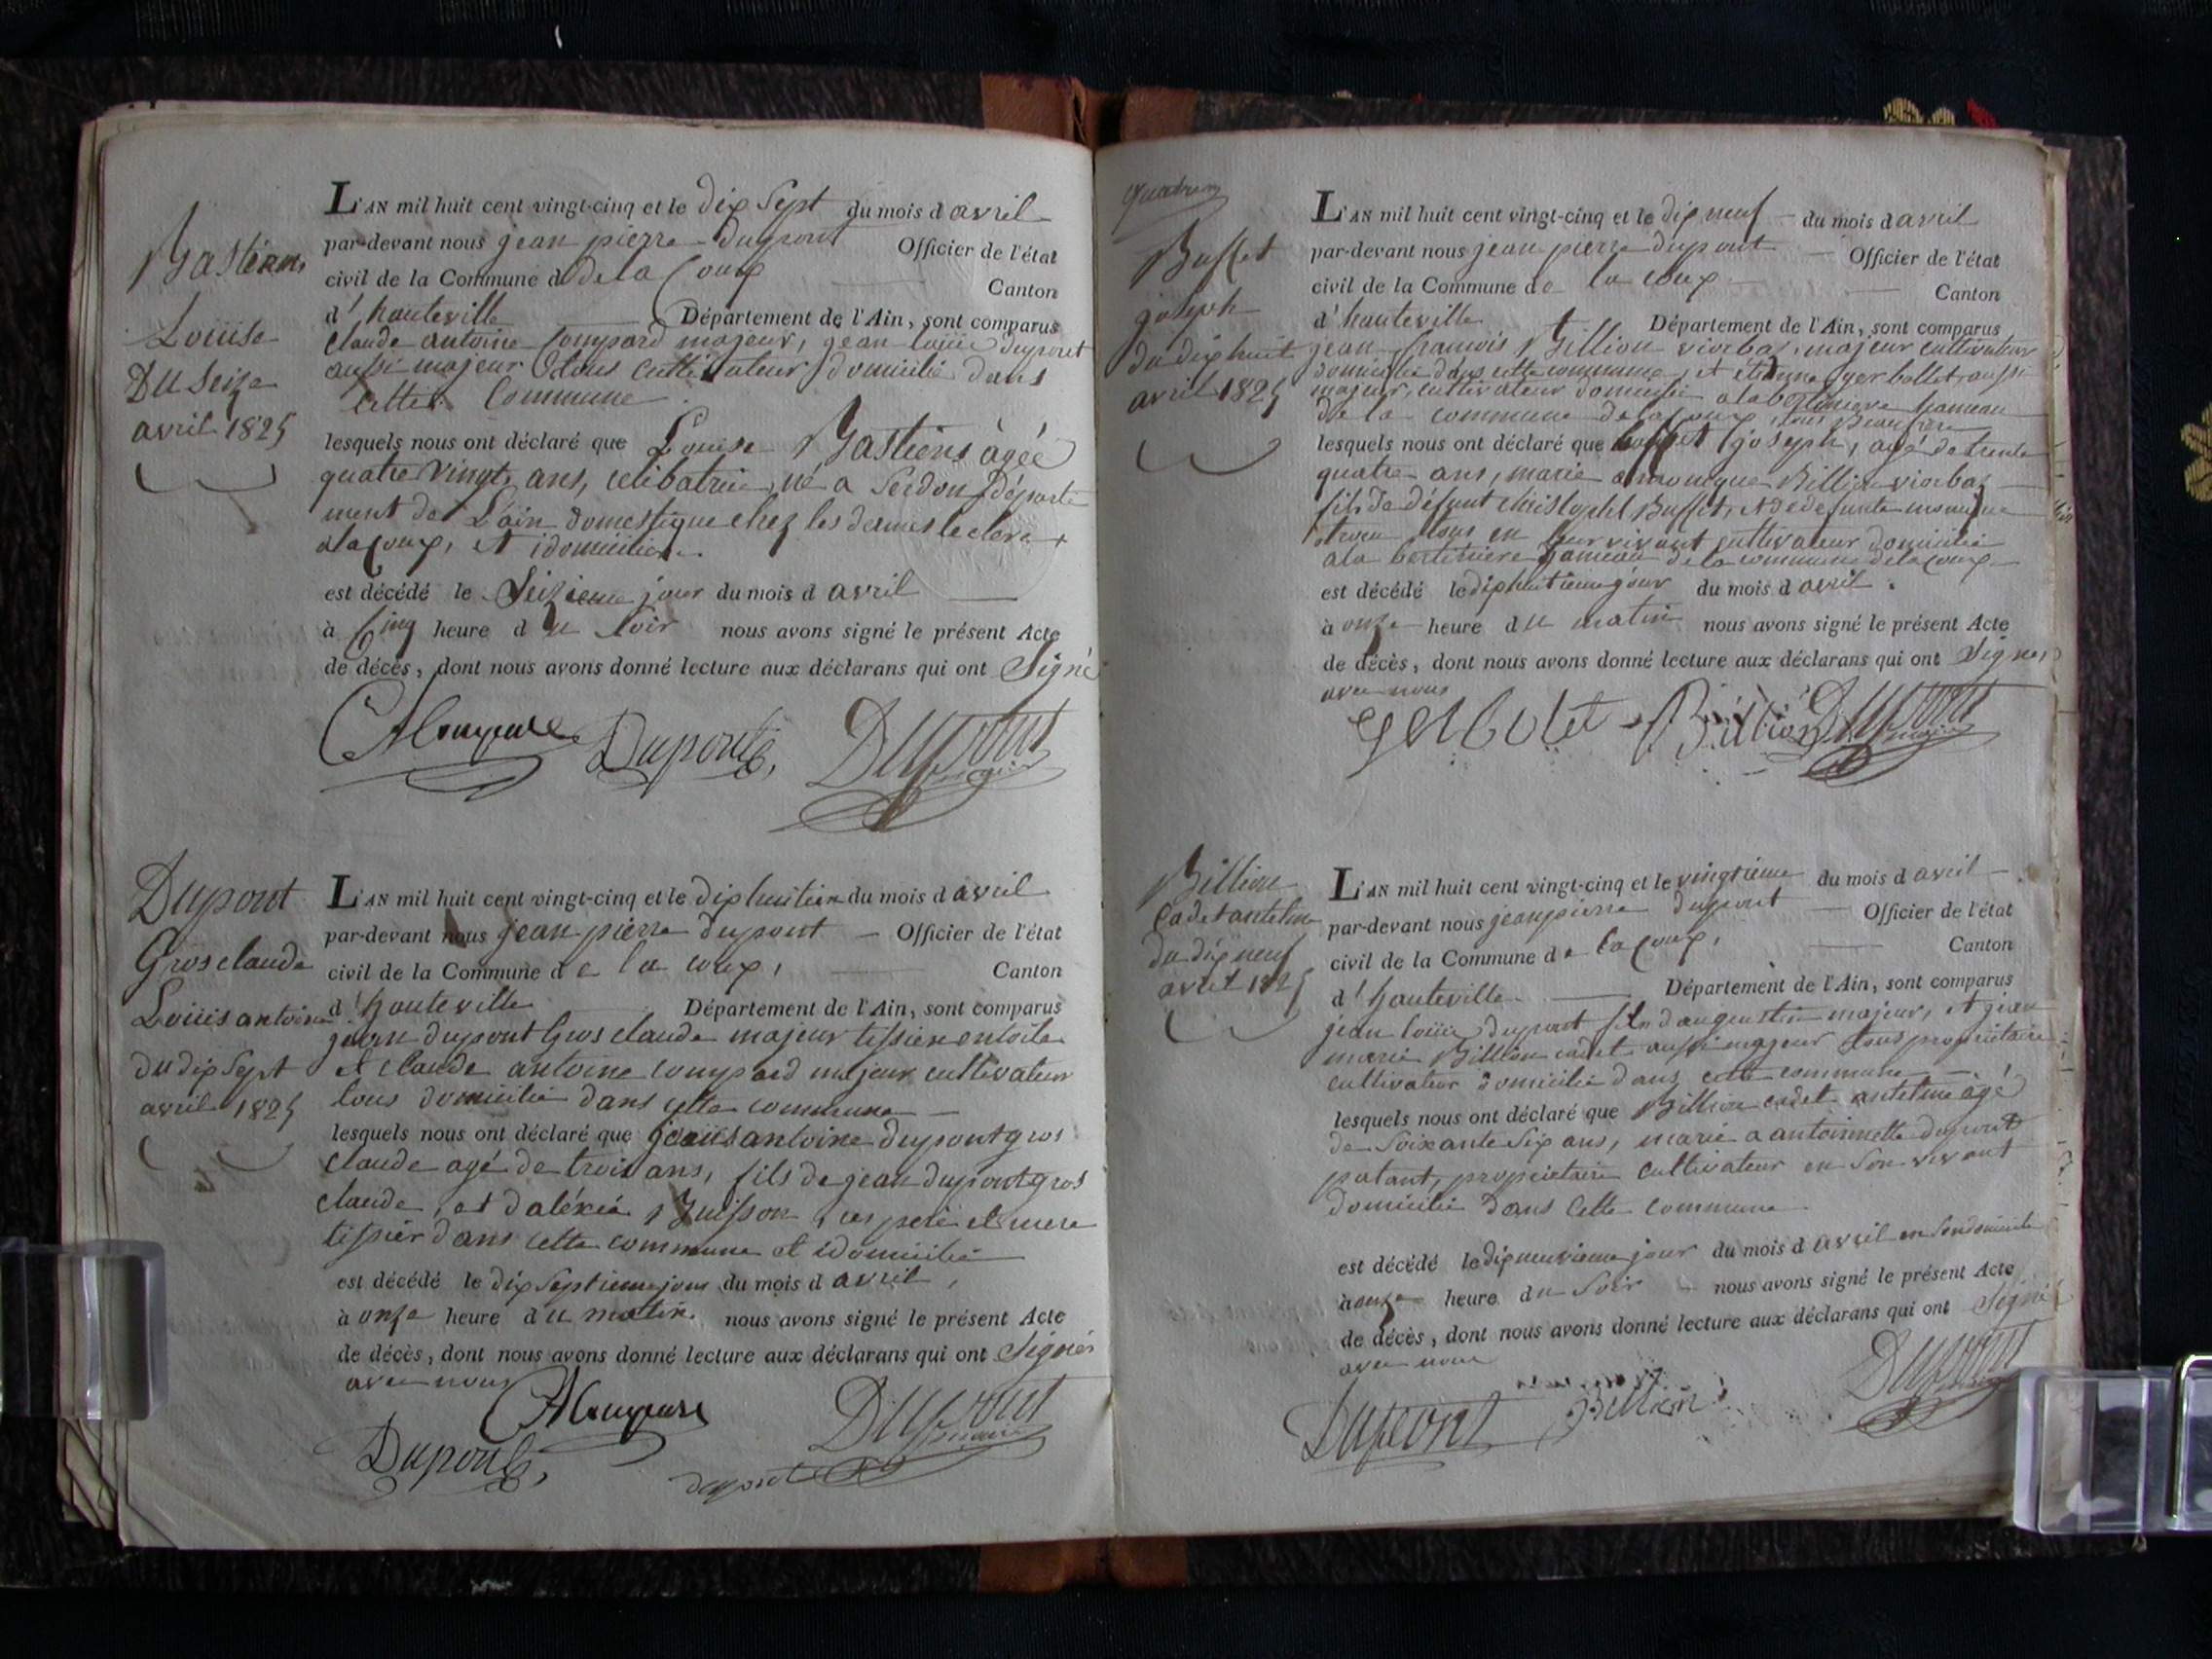 Bastiens
Louise
Du Seize
avril 1825
L'AN mil huit cent vingt-cinq et le dix Sept du mois d avril
par-devant nous jean pierre dupont Officier de l'état
civil de la Commune d de la Coux Canton
d' hauteville Département de l'Ain, sont comparus
claude antoine Compard majeur, jean louis dupont
aussi majeur tous cultivateur domicilié dans
cette Commune
lesquels nous ont déclaré que Louise Bastiens agée
quatre vingt ans, celibatrice, né a Serdon départe
ment de L'ain domestique chez les dames leclerc
a la Coux, et idomicilié
est décédé le Seizieme jour du mois d avril
à Cinq heure d u Soir nous avons signé le présent Acte
de décès, dont nous avons donné lecture aux déclarans qui ont Signé
Dupont
Dupont
Dupont
Gros claude
Louis antoine
du dix Sept
avril 1825
L'AN mil huit cent vingt-cinq et le dix huitien du mois d avril
par-devant nous jean pierre dupont Officier de l'état
civil de la Commune d e la coux, Canton
d' hauteville Département de l'Ain, sont comparus
jean dupont Gros claude majeur tissier en toile
et claude antoine compard majeur cultivateur
tous domicilié dans cette commune
lesquels nous ont déclaré que antoine dupont gros
claude agé de trois ans, fils de jean dupont gros
claude, et d aléxia Buisson, ces peré et mere
tissier dans cette commune et idomicilié
est décédé le dix Septieme jour du mois d avril,
à onze heure d u matin nous avons signé le présent Acte
de décès, dont nous avons donné lecture aux déclarans qui ont Signés
avec nous
Dupont
Dupont
dupont
Buffet
joseph
du dix huit
avril 1825
L'AN mil huit cent vingt-cinq et le dix neuf du mois d avril
par-devant nous jean pierre dupont Officier de l'état
civil de la Commune d e la coux Canton
d' hauteville Département de l'Ain, sont comparus
jean francois Billion viorbaz, majeur cultivateur
domicilié dans cette commune, et étienne gerbollet, aussi
majeur, cultivateur domicilié a la hameau
de la commune de la coux, tous Beaufrere
lesquels nous ont déclaré que buffet joseph, agé de trente
quatre ans, marié a Billion viorbaz
fils de défunt christophe Buffet, et de defunte
tous en leur vivant cultivateur domicilié
a la hameau de la commune de la coux
est décédé le dix huitieme jour du mois d avril.
à onze heure d u matin nous avons signé le présent Acte
de décès, dont nous avons donné lecture aux déclarans qui ont Signés
avec nous
gerbolet Billion Dupont
Billion
Cadet antelme
du dix neuf
avril 1825
L'AN mil huit cent vingt-cinq et le vingtieme du mois d avril
par-devant nous jean pierre dupont Officier de l'état
civil de la Commune d e la Coux, Canton
d' hauteville Département de l'Ain, sont comparus
jean louis dupont fils d augustin majeur, et jean
marie Billion cadet aussi majeur tous propriétaire
cultivateur domicilié dans cette commune
lesquels nous ont déclaré que Billion cadet antelme agé
de Soixante Six ans, marié a antoinnette dupont
patant, propriétaire cultivateur en Son vivant
domicilié dans Cette commune
est décédé le dix neuvieme jour du mois d avril en Son domicile
à onze heure d u Soir nous avons signé le présent Acte
de décès, dont nous avons donné lecture aux déclarans qui ont Signé
avec nous
Dupont Billion Dupont